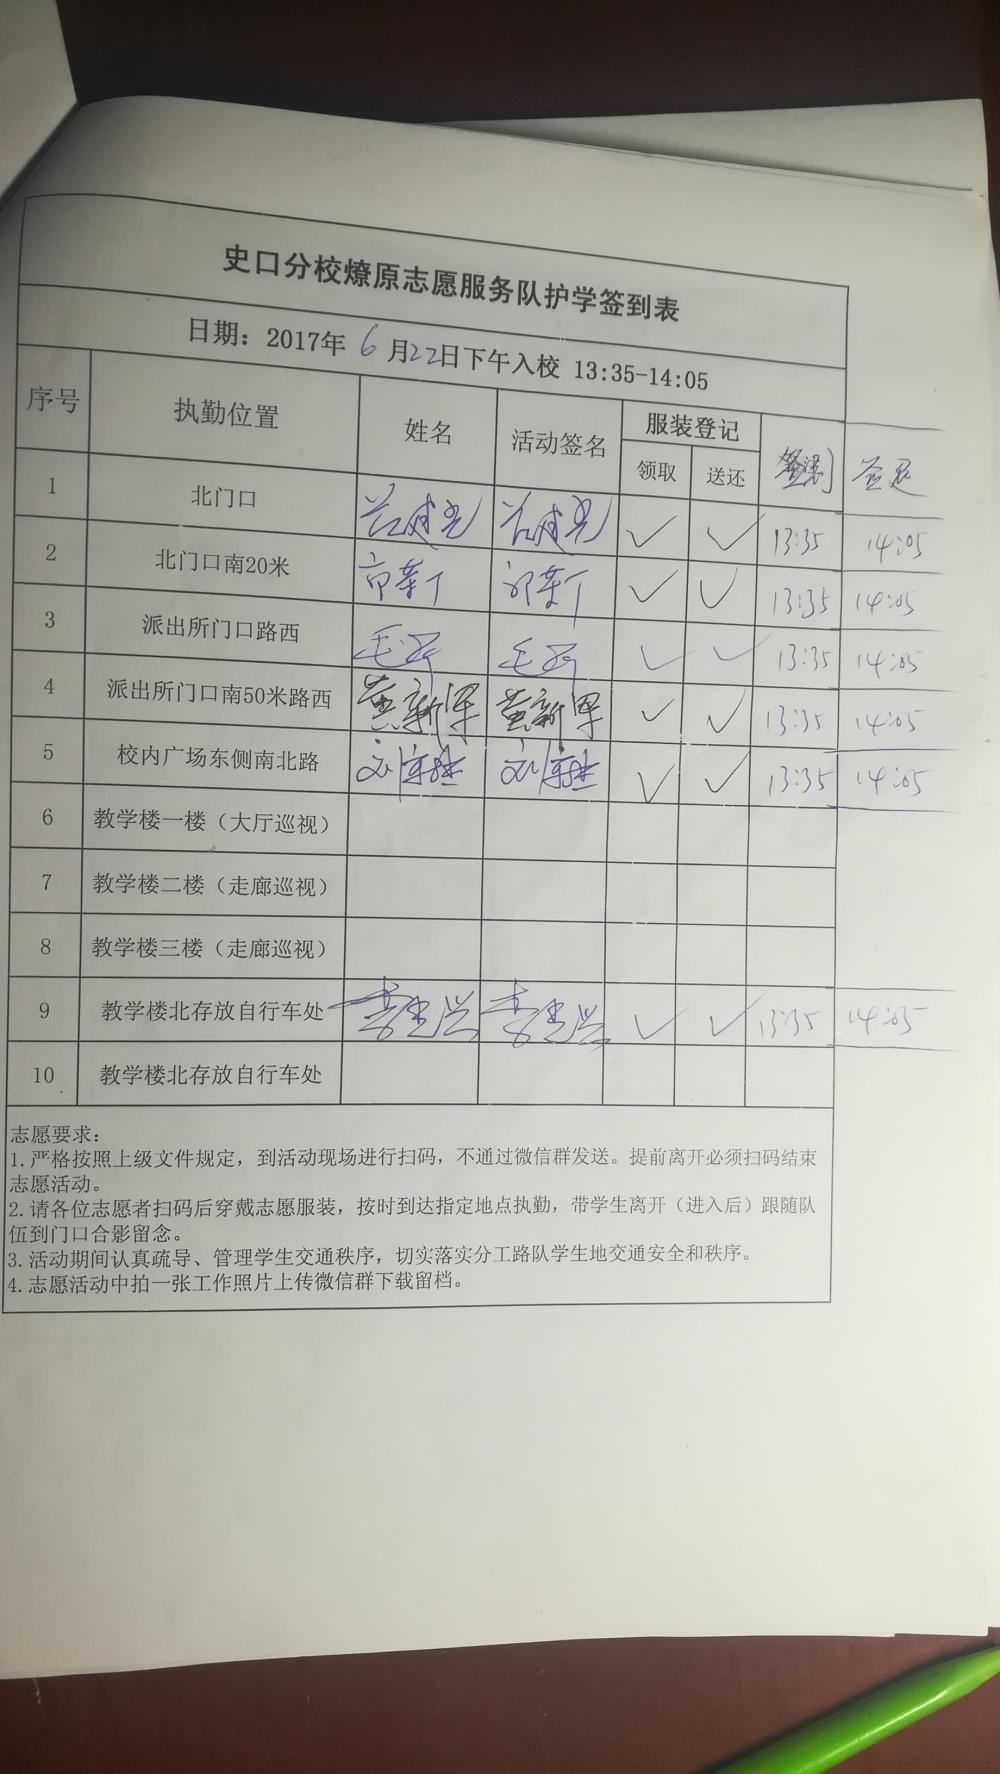 史口分校燎原志愿服务队护学签到表
日期：2017年 6 月22日下午入校 13:35-14:05
序号 执勤位置 姓名 活动签名 服装登记 签到 签退
领取 送还
1 北门口 ✓ ✓ 13:35 14:05
2 北门口南20米 ✓ ✓ 13:35 14:05
3 派出所门口路西 ✓ ✓ 13:35 14:05
4 派出所门口南50米路西 黄新军 黄新军 ✓ ✓ 13:35 14:05
5 校内广场东侧南北路 ✓ ✓ 13:35 14:05
6 教学楼一楼（大厅巡视）
7 教学楼二楼（走廊巡视）
8 教学楼三楼（走廊巡视）
9 教学楼北存放自行车处 ✓ ✓ 13:35 14:05
10 教学楼北存放自行车处
志愿要求：
1.严格按照上级文件规定，到活动现场进行扫码，不通过微信群发送。提前离开必须扫码结束
志愿活动。
2.请各位志愿者扫码后穿戴志愿服装，按时到达指定地点执勤，带学生离开（进入后）跟随队
伍到门口合影留念。
3.活动期间认真疏导、管理学生交通秩序，切实落实分工路队学生地交通安全和秩序。
4.志愿活动中拍一张工作照片上传微信群下载留档。